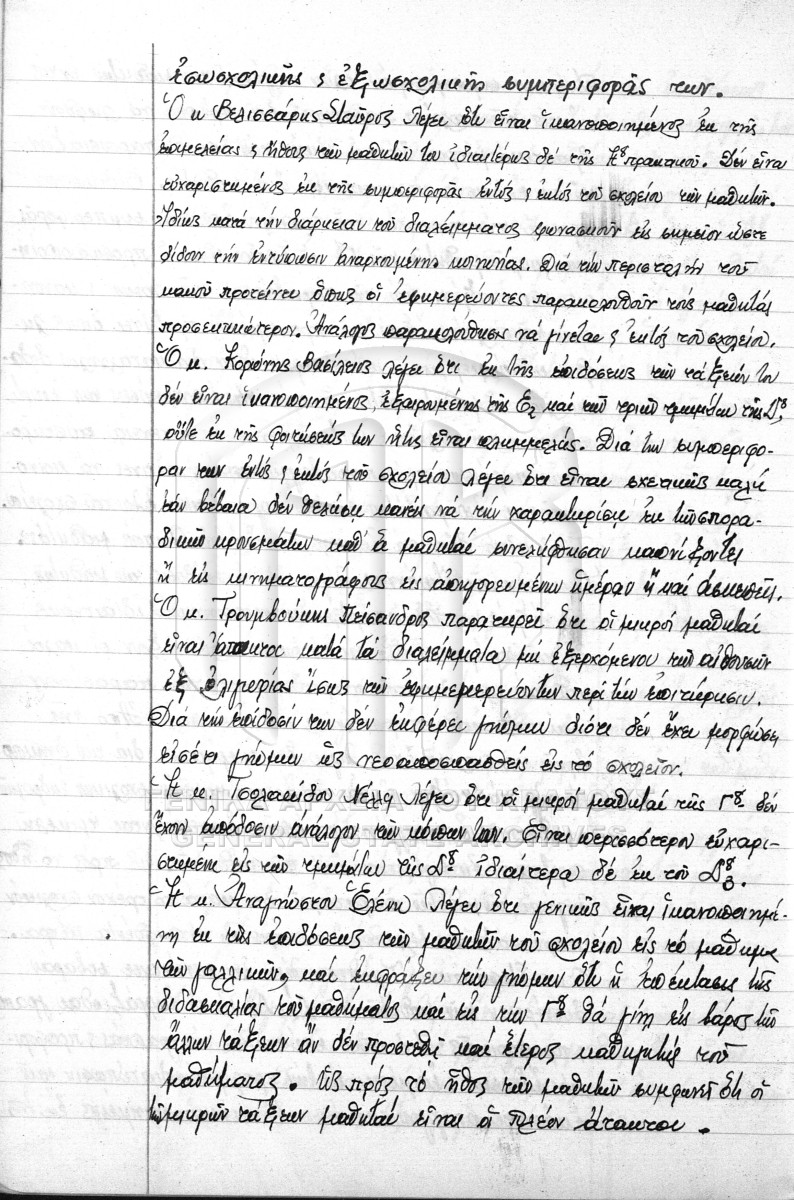 ἐσωσχολικῆς ς ἐξωσχολικῆς συμπεριφορᾶς των.
Ὁ κ Βελισσάρης Σταῦρος λέγει ὅτι εἶναι ἱκανοποιημένος ἐκ τῆς
ἐπιμελείας ς ἤθους τῶν μαθητῶν του ἰδιαιτέρως δέ τῆς πρακτικοῦ. Δέν εἶναι
εὐχαριστημένος ἐκ τῆς συμπεριφορᾶς ἐντός ς ἐκτός τοῦ σχολείου τῶν μαθητῶν.
Ἰδίως κατά τήν διάρκειαν τοῦ διαλείμματος φωνασκοῦν εἰς σημεῖον ὥστε
δίδουν τήν ἐντύπωσιν ἀναρχουμένης κοινωνίας. Διά τήν περιστολήν τοῦ
κακοῦ προτείνει ὅπως οἱ ἐφημερεύοντες παρακολουθοῦν τούς μαθητάς
προσεκτικώτερον. Ἀνάλογος παρακολούθησις νά γίνεται ς ἐκτός τοῦ σχολείου.
Ὁ κ. Κοριώτης Βασίλειος λέγει ὅτι ἐκ τῆς ἐπιδόσεως τῶν τάξεών του
δέν εἶναι ἱκανοποιημένος, ἐξαιρουμένης τῆς Ε2 καί τῶν τριῶν τμημάτων τῆς Δ,
οὔτε ἐκ τῆς φοιτήσεώς των ἥτις εἶναι πλημμελής. Διά τήν συμπεριφο-
ράν των ἐντός ς ἐκτός τοῦ σχολείου λέγει ὅτι εἶναι σχετικῶς καλή
ἐάν βέβαια δέν θελήσῃ κανείς νά τήν χαρακτηρίσῃ ἐκ τῶν σπορα-
δικῶν κρουσμάτων καθ' ἅ μαθηταί συνελήφθησαν καπνίζοντες
ἤ εἰς κινηματογράφους εἰς ἀπηγορευμένην ἡμέραν ἤ καί ἀσκεπεῖς.
Ὁ κ. Τρουμβούκης Πείσανδρος παρατηρεῖ ὅτι οἱ μικροί μαθηταί
εἶναι ἄτακτοι κατά τά διαλείμματα μή ἐξερχόμενοι τῶν αἰθουσῶν
ἐξ ὀλιγωρίας ἴσως τῶν ἐφημερευόντων περί τήν ἐπιτήρησιν.
Διά τήν ἐπίδοσίν των δέν ἐκφέρει γνώμην διότι δέν ἔχει μορφώσει
εἰσέτι γνώμην ὡς νεοαποσπασθείς εἰς τό σχολεῖον.
Ἡ κ. Τσολακίδου Νέλλη λέγει ὅτι οἱ μικροί μαθηταί τῆς Γης δέν
ἔχουν ἀπόδοσιν ἀνάλογον τῶν κόπων των. Εἶναι περισσότερον εὐχαρι-
στημένη εἰς τῶν τμημάτων τῆς Δης ἰδιαίτερα δέ ἐκ τοῦ Δ3.
Ἡ κ. Ἀναγνώστου Ἑλένη λέγει ὅτι γενικῶς εἶναι ἱκανοποιημέ-
νη ἐκ τῆς ἐπιδόσεως τῶν μαθητῶν τοῦ σχολείου εἰς τό μάθημα
τῶν γαλλικῶν, καί ἐκφράζει τήν γνώμην ὅτι ἡ ἐπέκτασις τῆς
διδασκαλίας τοῦ μαθήματος καί εἰς τήν Γην θά γίνῃ εἰς βάρος τῶν
ἄλλων τάξεων ἄν δέν προστεθῇ καί ἕτερος καθηγητής τοῦ
μαθήματος. Ὡς πρός τό ἦθος τῶν μαθητῶν συμφωνεῖ ὅτι οἱ
τῶν μικρῶν τάξεων μαθηταί εἶναι οἱ πλέον ἄτακτοι.
ΓΕΝΙΚΑ ΑΡΧΕΙΑ ΤΟΥ ΚΡΑΤΟΥΣ
GENERAL STATE ARCHIVES